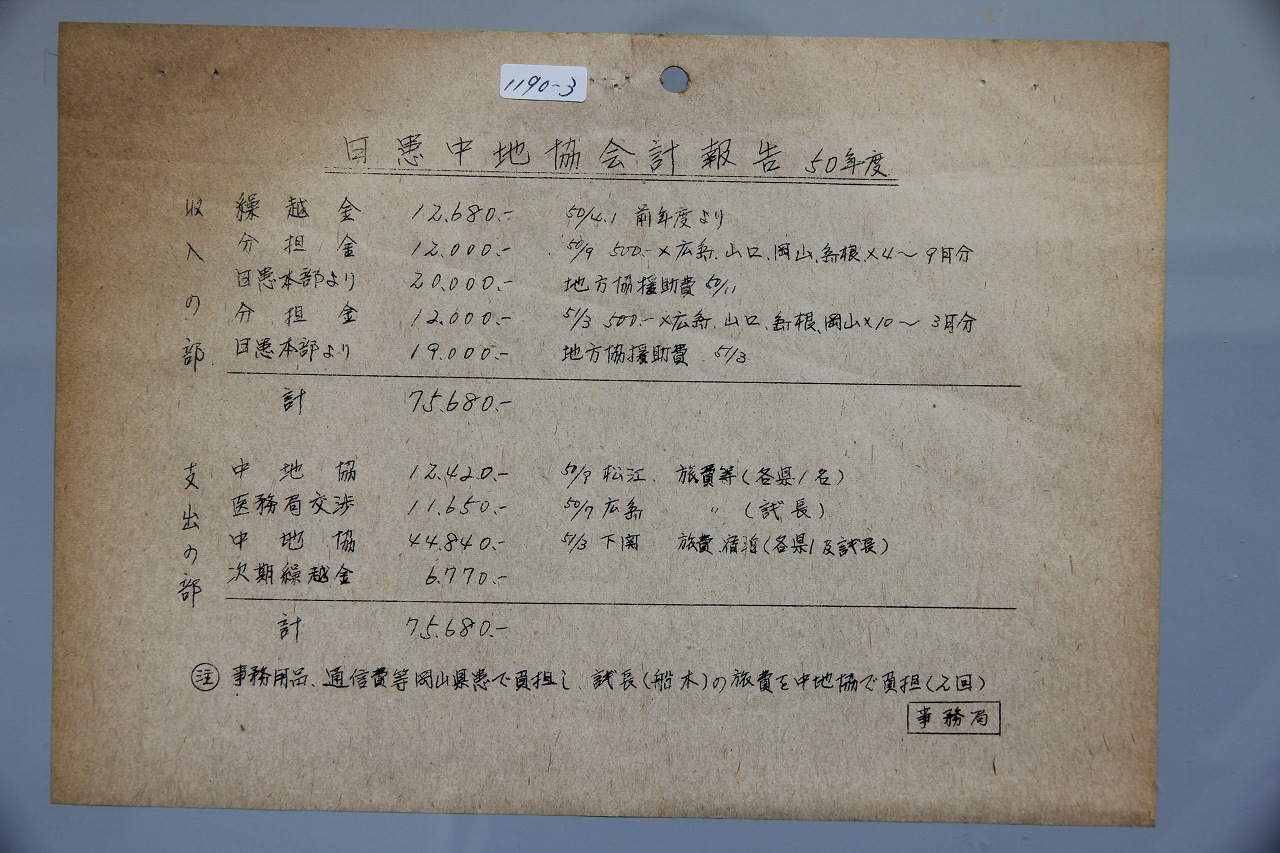 1190-3
日患中地協会計報告 50年度
収入の部
繰越金 12.680.- 50/4.1 前年度より
分担金 12.000.- 50/9 500.-×広島、山口、岡山、島根、×4〜9月分
日患本部より 20.000.- 地方協援助費 50/11
分担金 12.000.- 51/3 500.-×広島、山口、島根、岡山×10〜3月分
日患本部より 19.000.- 地方協援助費 51/3
計 75.680.-
支出の部
中地協 12.420.- 50/7 松江. 旅費等(各県1名)
医務局交渉 11.650.- 50/7 広島 〃 (議長)
中地協 44.840.- 51/3 下関 旅費.宿泊(各県1及議長)
次期繰越金 6.770.-
計 75.680.-
注 事務用品、通信費等岡山県患で負担し 議長(船木)の旅費を中地協で負担(2回)
事務局